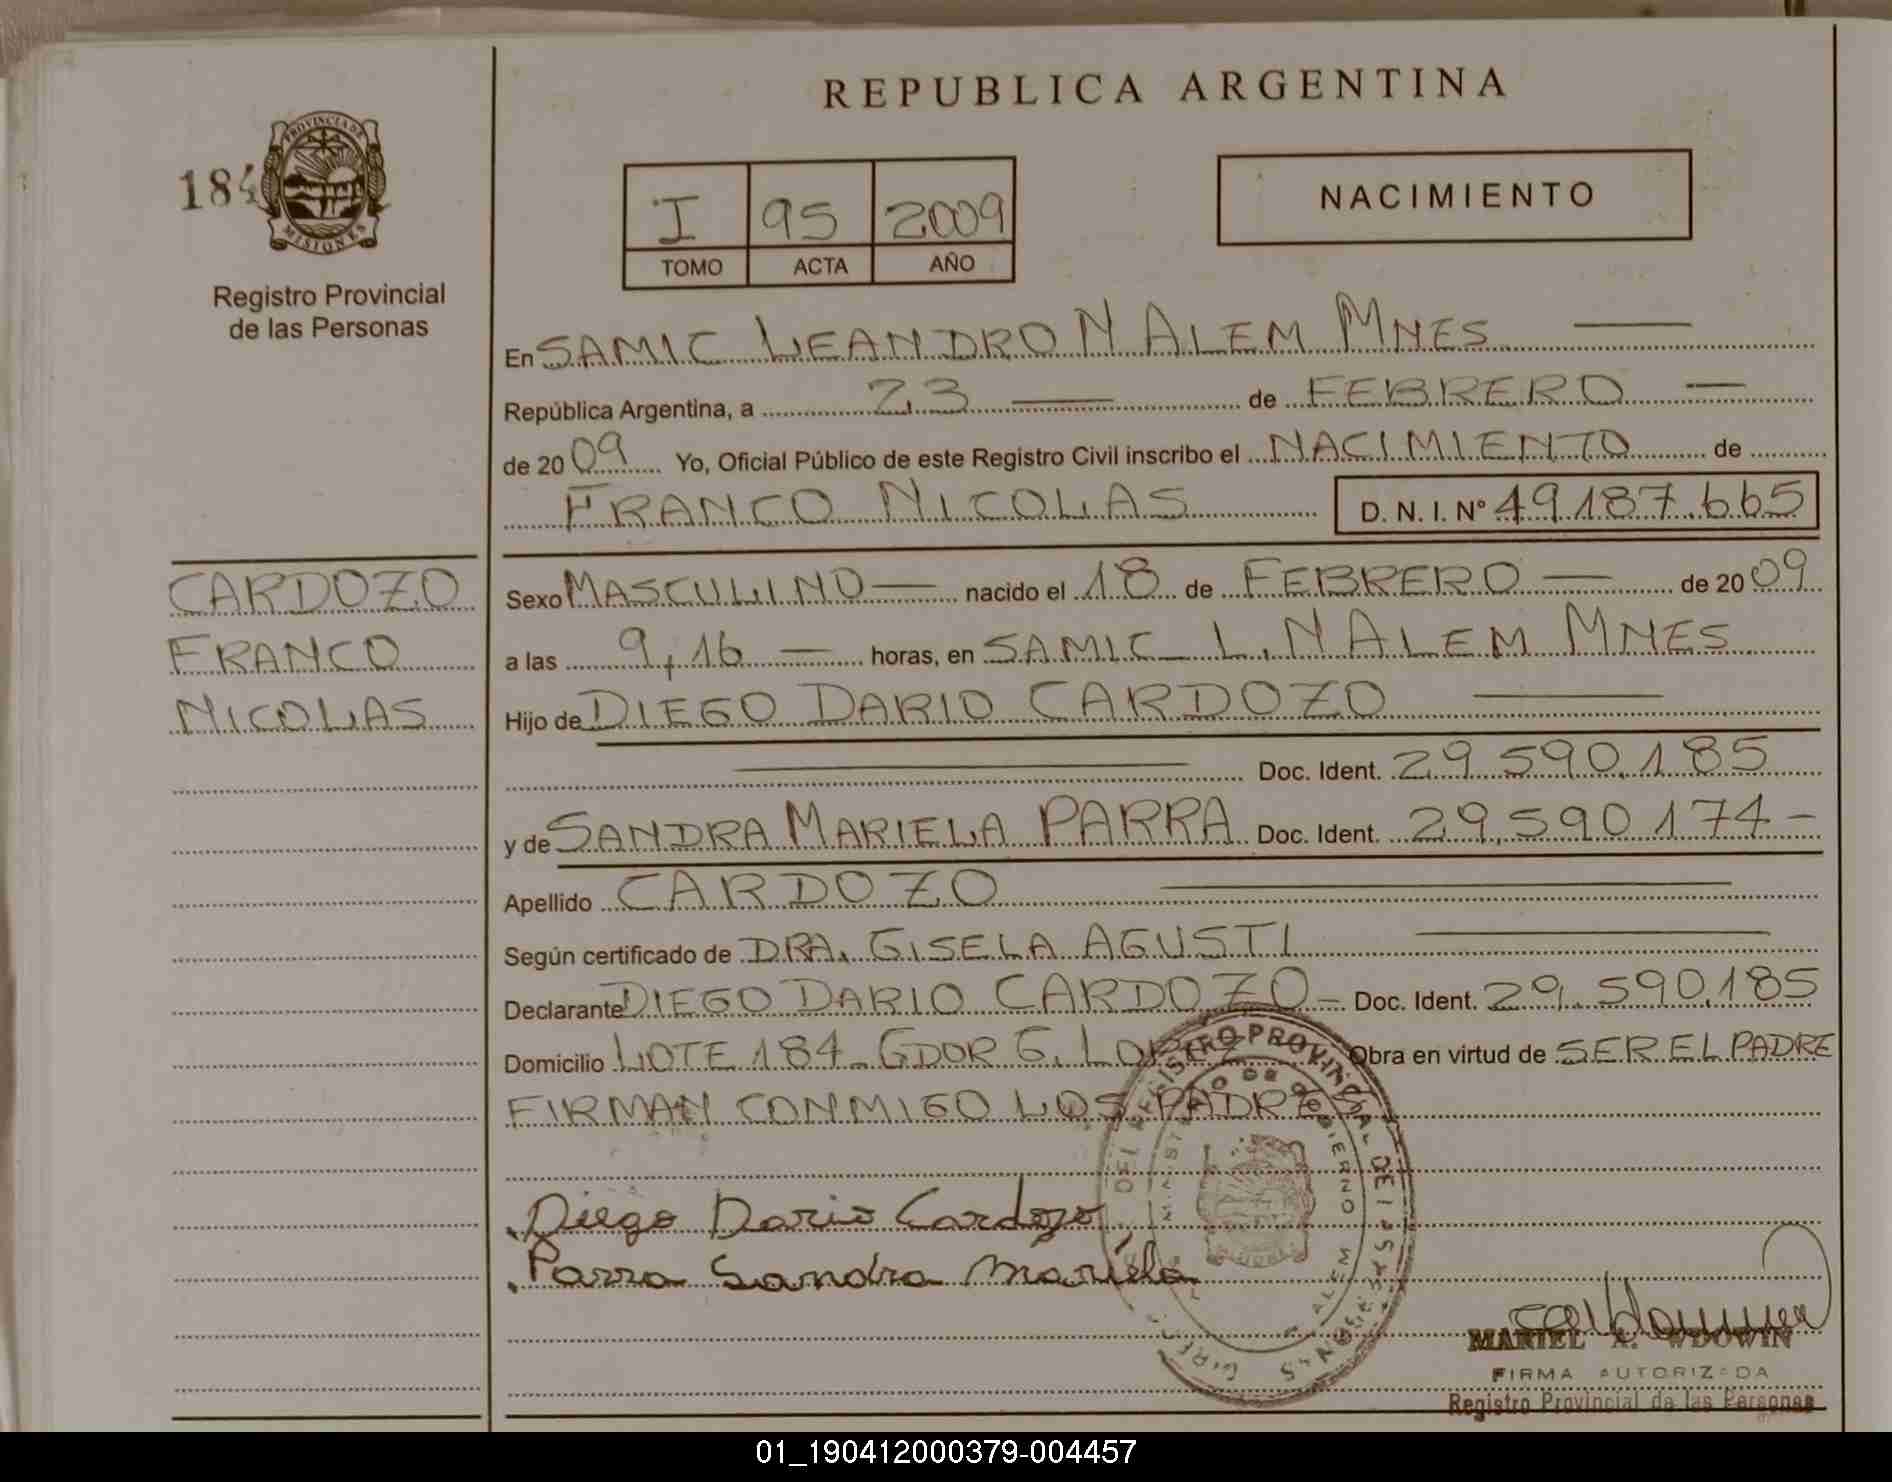 REPUBLICA ARGENTINA
184
PROVINCIA DE
MISIONES
Registro Provincial
de las Personas
I 95 2009
TOMO ACTA AÑO
NACIMIENTO
En SAMIC LEANDRO N ALEM MNES
República Argentina, a 23 de FEBRERO
de 2009 Yo, Oficial Público de este Registro Civil inscribo el NACIMIENTO de
FRANCO NICOLAS D. N. I. N° 49.187.665
CARDOZO
FRANCO
NICOLAS
Sexo MASCULINO nacido el 18 de FEBRERO de 2009
a las 9,16 horas, en SAMIC L. N ALEM MNES
Hijo de DIEGO DARIO CARDOZO
Doc. Ident. 29.590.185
y de SANDRA MARIELA PARRA Doc. Ident. 29.590.174-
Apellido CARDOZO
Según certificado de DRA. GISELA AGUSTI
Declarante DIEGO DARIO CARDOZO- Doc. Ident. 29.590.185
Domicilio LOTE 184- GDOR G. LOPEZ Obra en virtud de SER EL PADRE
FIRMAN CONMIGO LOS PADRES
Diego Dario Cardozo
Parra Sandra Mariela
REGISTRO PROVINCIAL DE LAS PERSONAS
MINISTERIO DE GOBIERNO
ALEM
MARIEL A. WDOWIN
FIRMA AUTORIZADA
Registro Provincial de las Personas
01_190412000379-004457